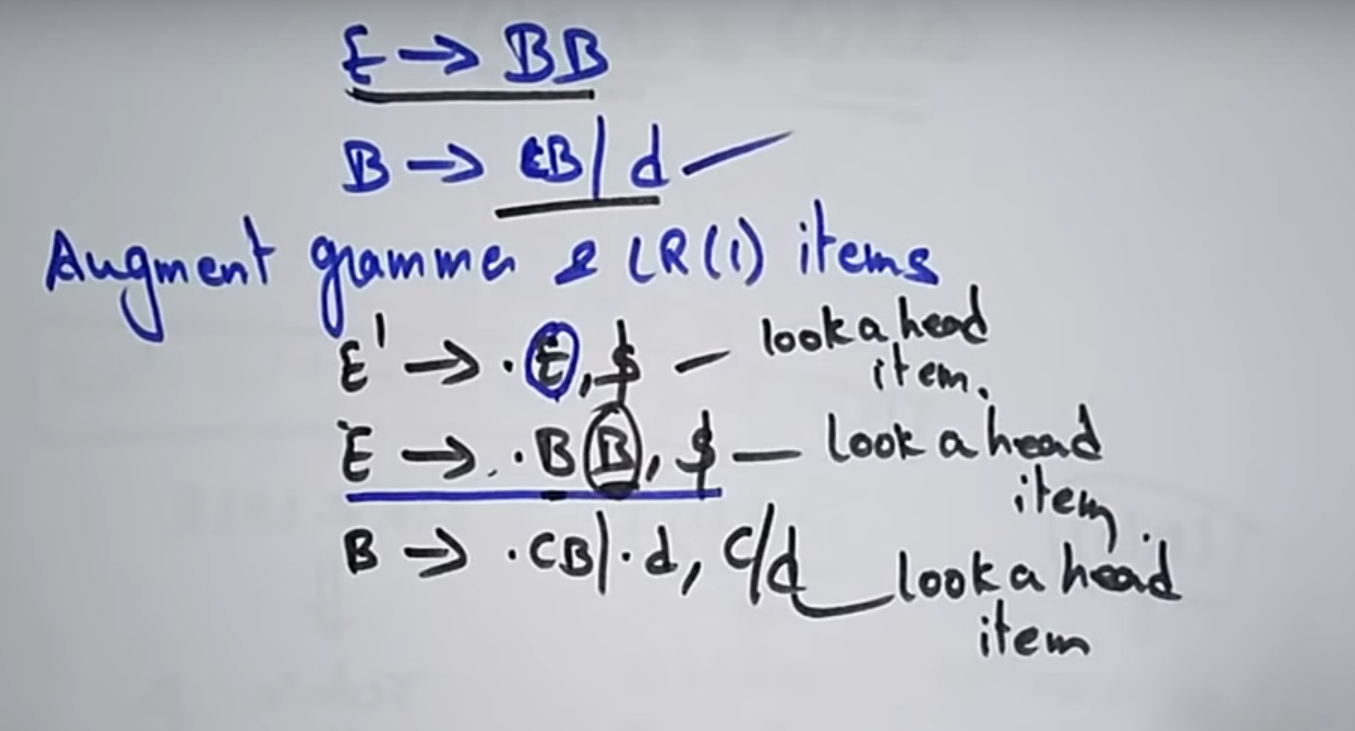 E → BB
B → cB | d
Augment grammer & LR(1) items
E' → ·E, $ — look a head item.
E → ·BB, $ — look a head item.
B → ·CB | ·d, C/d look a head item